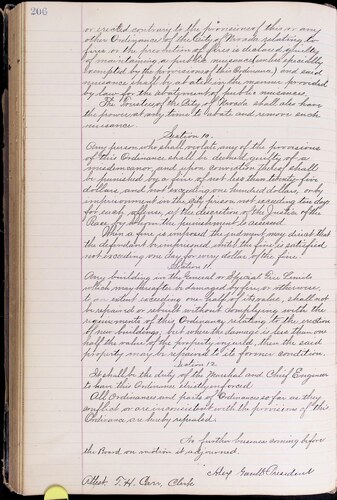 206
or erected contrary to the provisions of this or any
other Ordinance of the City of Nevada relating to
fires or the prevention of fires is declared guilty
of maintaining a public nuisance (unless specially
exempted by the provisions of this Ordinance) and said
nuisance shall be abated in the manner provided
by law for the abatement of public nuisances.
The Trustees of the City of Nevada shall also have
the power at any time to abate and remove such
nuisance.
Section 10.
Any person who shall violate any of the provisions
of this Ordinance shall be deemed guilty of a
misdemeanor, and upon conviction thereof shall
be punished by a fine of not less than twenty-five
dollars, and not exceeding one hundred dollars, or by
imprisonment in the city prison not exceeding ten days
for each offense, at the discretion of the Justice of the
Peace by whom the punishment is assessed.
When a fine is imposed the judgment may direct that
the defendant be imprisoned until the fine is satisfied
not exceeding one day for every dollar of the fine
Section 11.
Any building in the General or Special Fire Limits
which may hereafter be damaged by fire, or otherwise,
to an extent exceeding one half of its value, shall not
be repaired or rebuilt without complying with the
requirements of this Ordinance, relating to the erection
of new buildings, but where the damage is less than one
half the value of the property injured, then the said
property may be repaired to its former condition.
Section 12.
It shall be the duty of the Marshal and Chief Engineer
to have this Ordinance strictly enforced
All Ordinances and parts of Ordinances so far as they
conflict or are inconsistent with the provisions of this
Ordinance are hereby repealed.
No further business coming before
the Board on motion it adjourned.
Alex Gault President
Attest T. H. Carr, Clerk